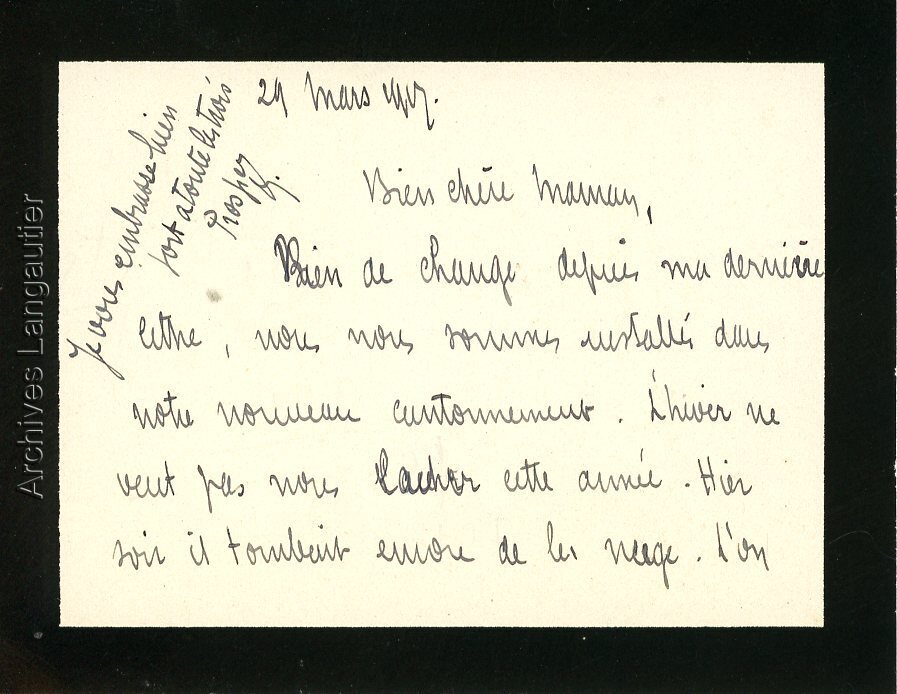 29 Mars 1917.
Bien chère Maman,
Bien de change depuis ma dernière
lettre, nous nous sommes installés dans
notre nouveau cantonnement. L'hiver ne
veut pas nous lacher cette année. Hier
soir il tombait encore de la neige. L'on
Je vous embrasse bien
fort a toute les trois
Prosper
Archives Langautier